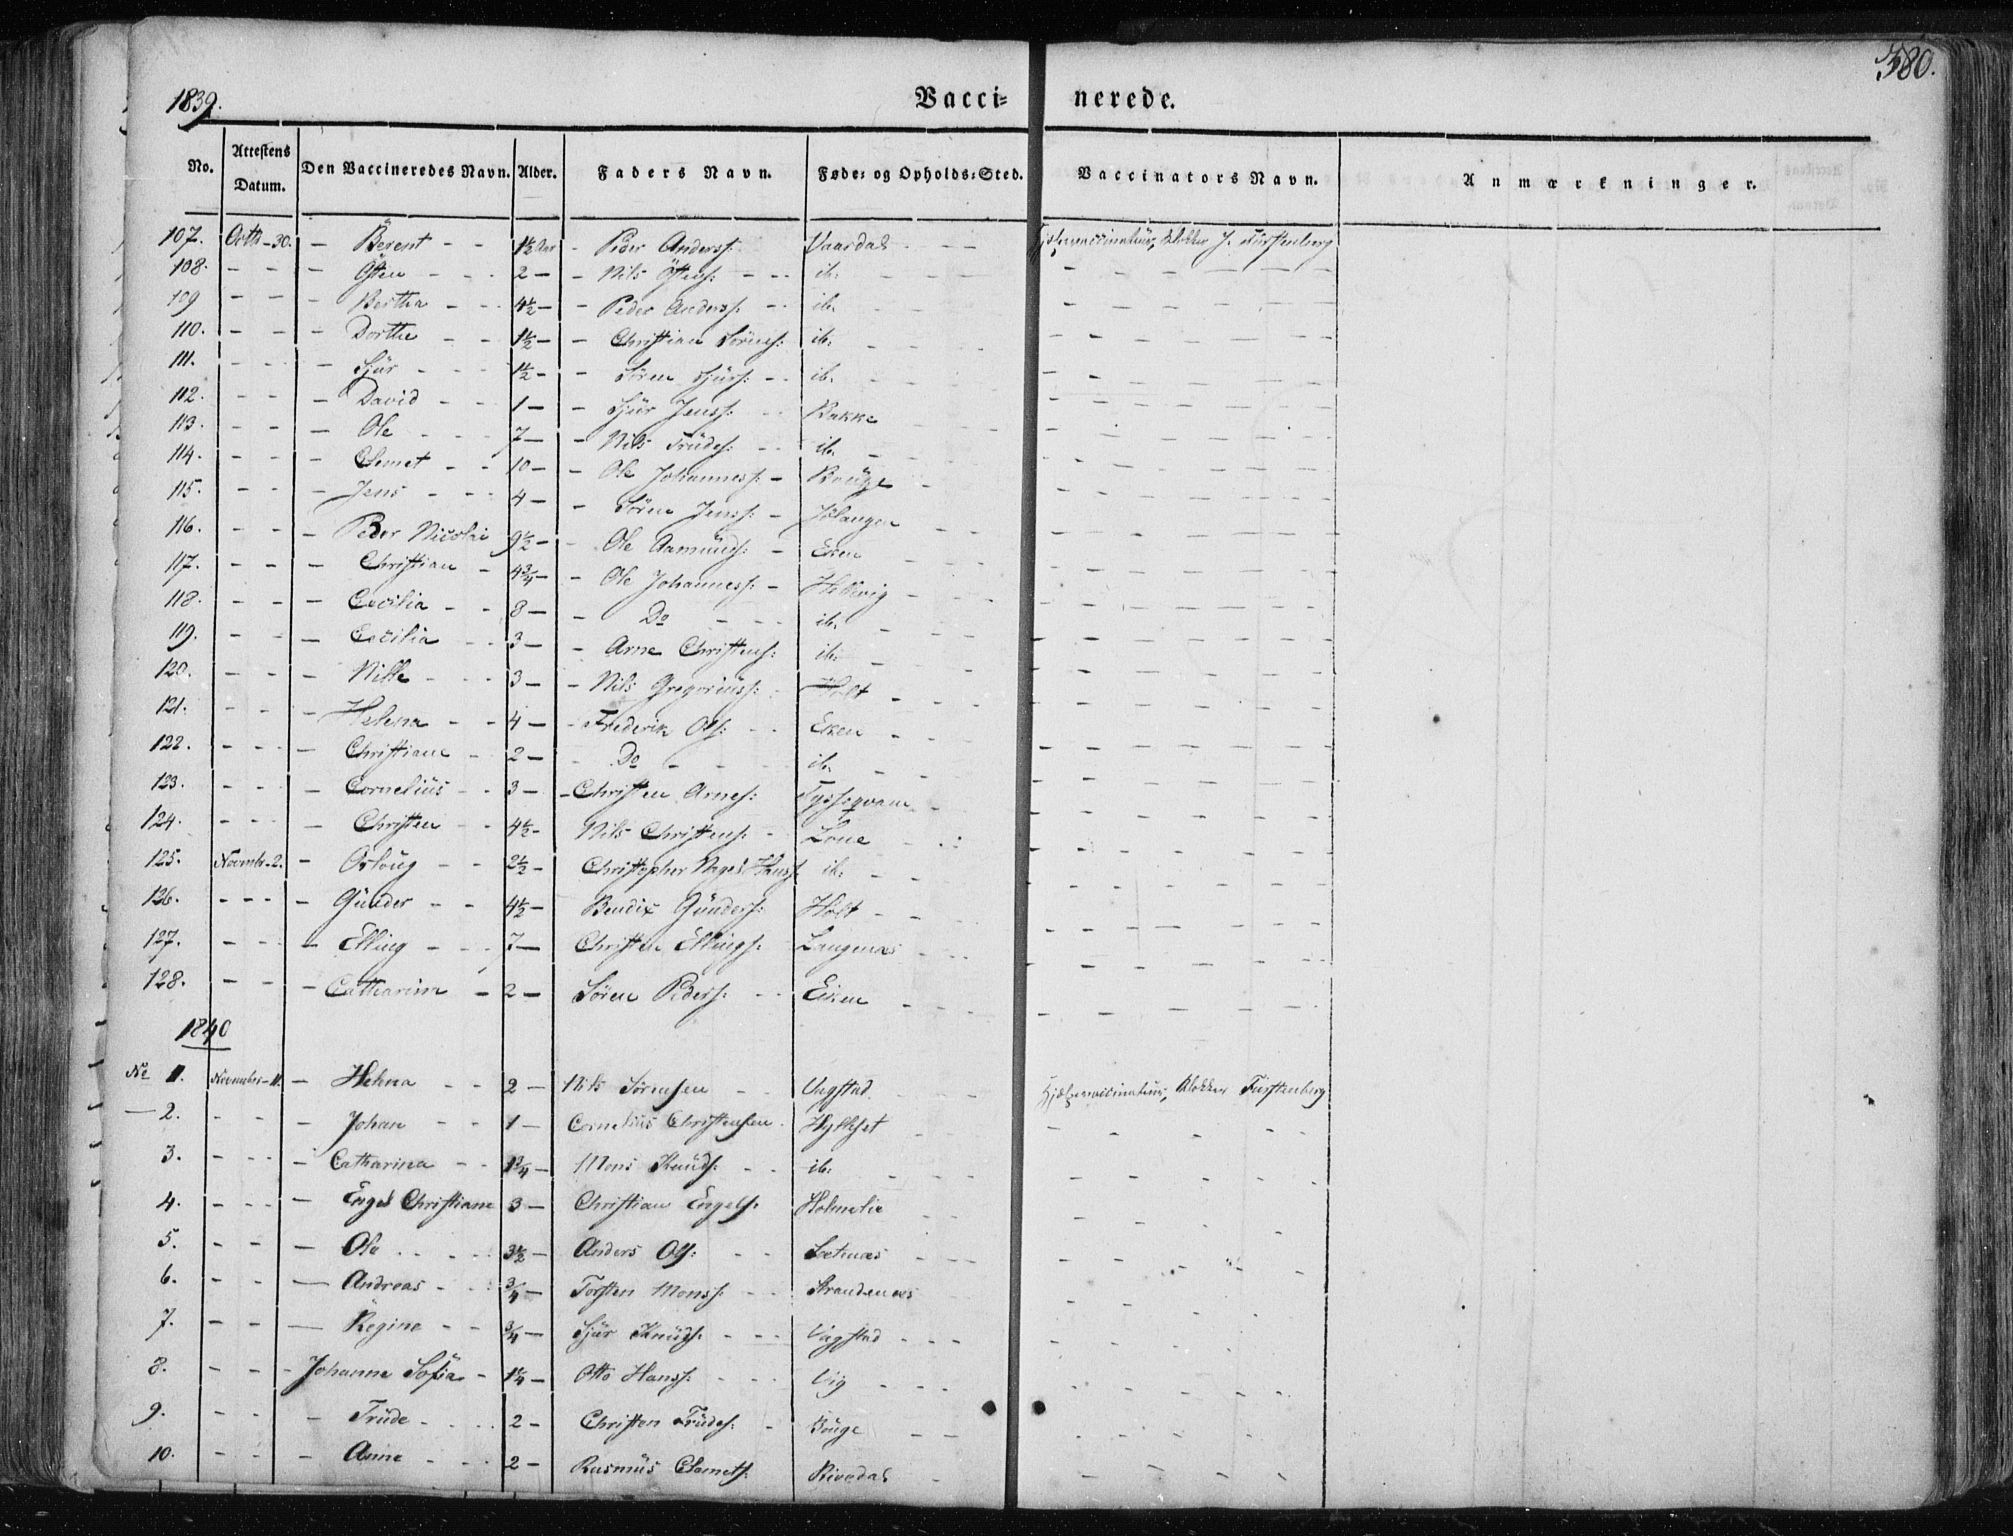 380.
1839. Vacci= nerede.
No. Attestens Datum. Den Vaccineredes Navn. Alder. Faders Navn. Føde= og Opholds=Sted. Vaccinators Navn. Anmærkninger.
107. Octbr-30. - Berent - 1½ Aar - Peder Anders: Vaardal - - Hjelpevaccinateur, Klokker J. Fürstenberg
108. - - - Østen - - 2 - - Nils Østens: - - ib:
109 - - - Bertha - - 4½ - - Peder Anders: - - ib:
110. - - - Dorthe - - 1½ - - Christian Sörens: ib:
111. - - - Sjür - - 1½ - - Sören Sjürs: - - ib:
112. - - - David - - 1 - - Sjür Jenss: - - Bakke
113. - - - Ole - - 7 - - Nils Trüdes: - - ib:
114. - - - Clemet - - 10 - - Ole Johanness: - Bouge
115. - - - Jens - - 4 - - Sören Jenss: -
116. - - - Peder Nicolai 9½ - - Ole Aamünds: - Eken
117. - - - Christian - 4¾ - - Ole Johanness: - Hellevig
118. - - - Cecilia - - 8 - - Do - - ib:
119. - - - Cecilia - - 3 - - Arne Christens: ib:
120. - - - Nille - - 3 - - Nils Gregoriüss: - Holt
121. - - - Helena - - 4 - - Frederik Ols: - - Eken
122. - - - Christiane - - 2 - - Do - - ib:
123. - - - Cornelius - - 3 - - Christen Arnes: Tysseqvam
124. - - - Christen - - 4½ - Nils Christens: - Lone
125. Novembr-2. - Osloug - - 2½ - Christopher Nagel Hanss: ib:
126. - - - Günder - - 4½ - Bendix Günders: Holt
127. - - - Elling - - 7 - Christen Ellings: Langenæs
128. - - - Catharina - 2 - Sören Peders: - - Eken
1840
No 1. November-11. - Helena - - 2 - Nils Sörensen - Vagstad Hjelpevaccinateur, Klokker Fürstenberg
- 2. - - - Johan - - 1 - Cornelius Christensen Hylleset
3. - - - Catharina - - 1¾ - Mons Knüds: - - ib:
4. - - - Engel Christiane 3 - Christian Engels: Holmelie
5. - - - Ole - - 3½ - Anders Ols: - - Sætenæs
6. - - - Andreas - - ¾ - Torsten Monss: - - Strandenæs
7. - - - Regine - - ¾ - Sjür Knüds: - - Vagstad
8. - - - Johanne Sofia - 1¼ - Otto Hanss: - - Vig
9. - - - Trüde - - 2 - Christen Trüdes: - Bouge
10. - - - Anne - - 2 - Rasmüs Clemets: Rivedal